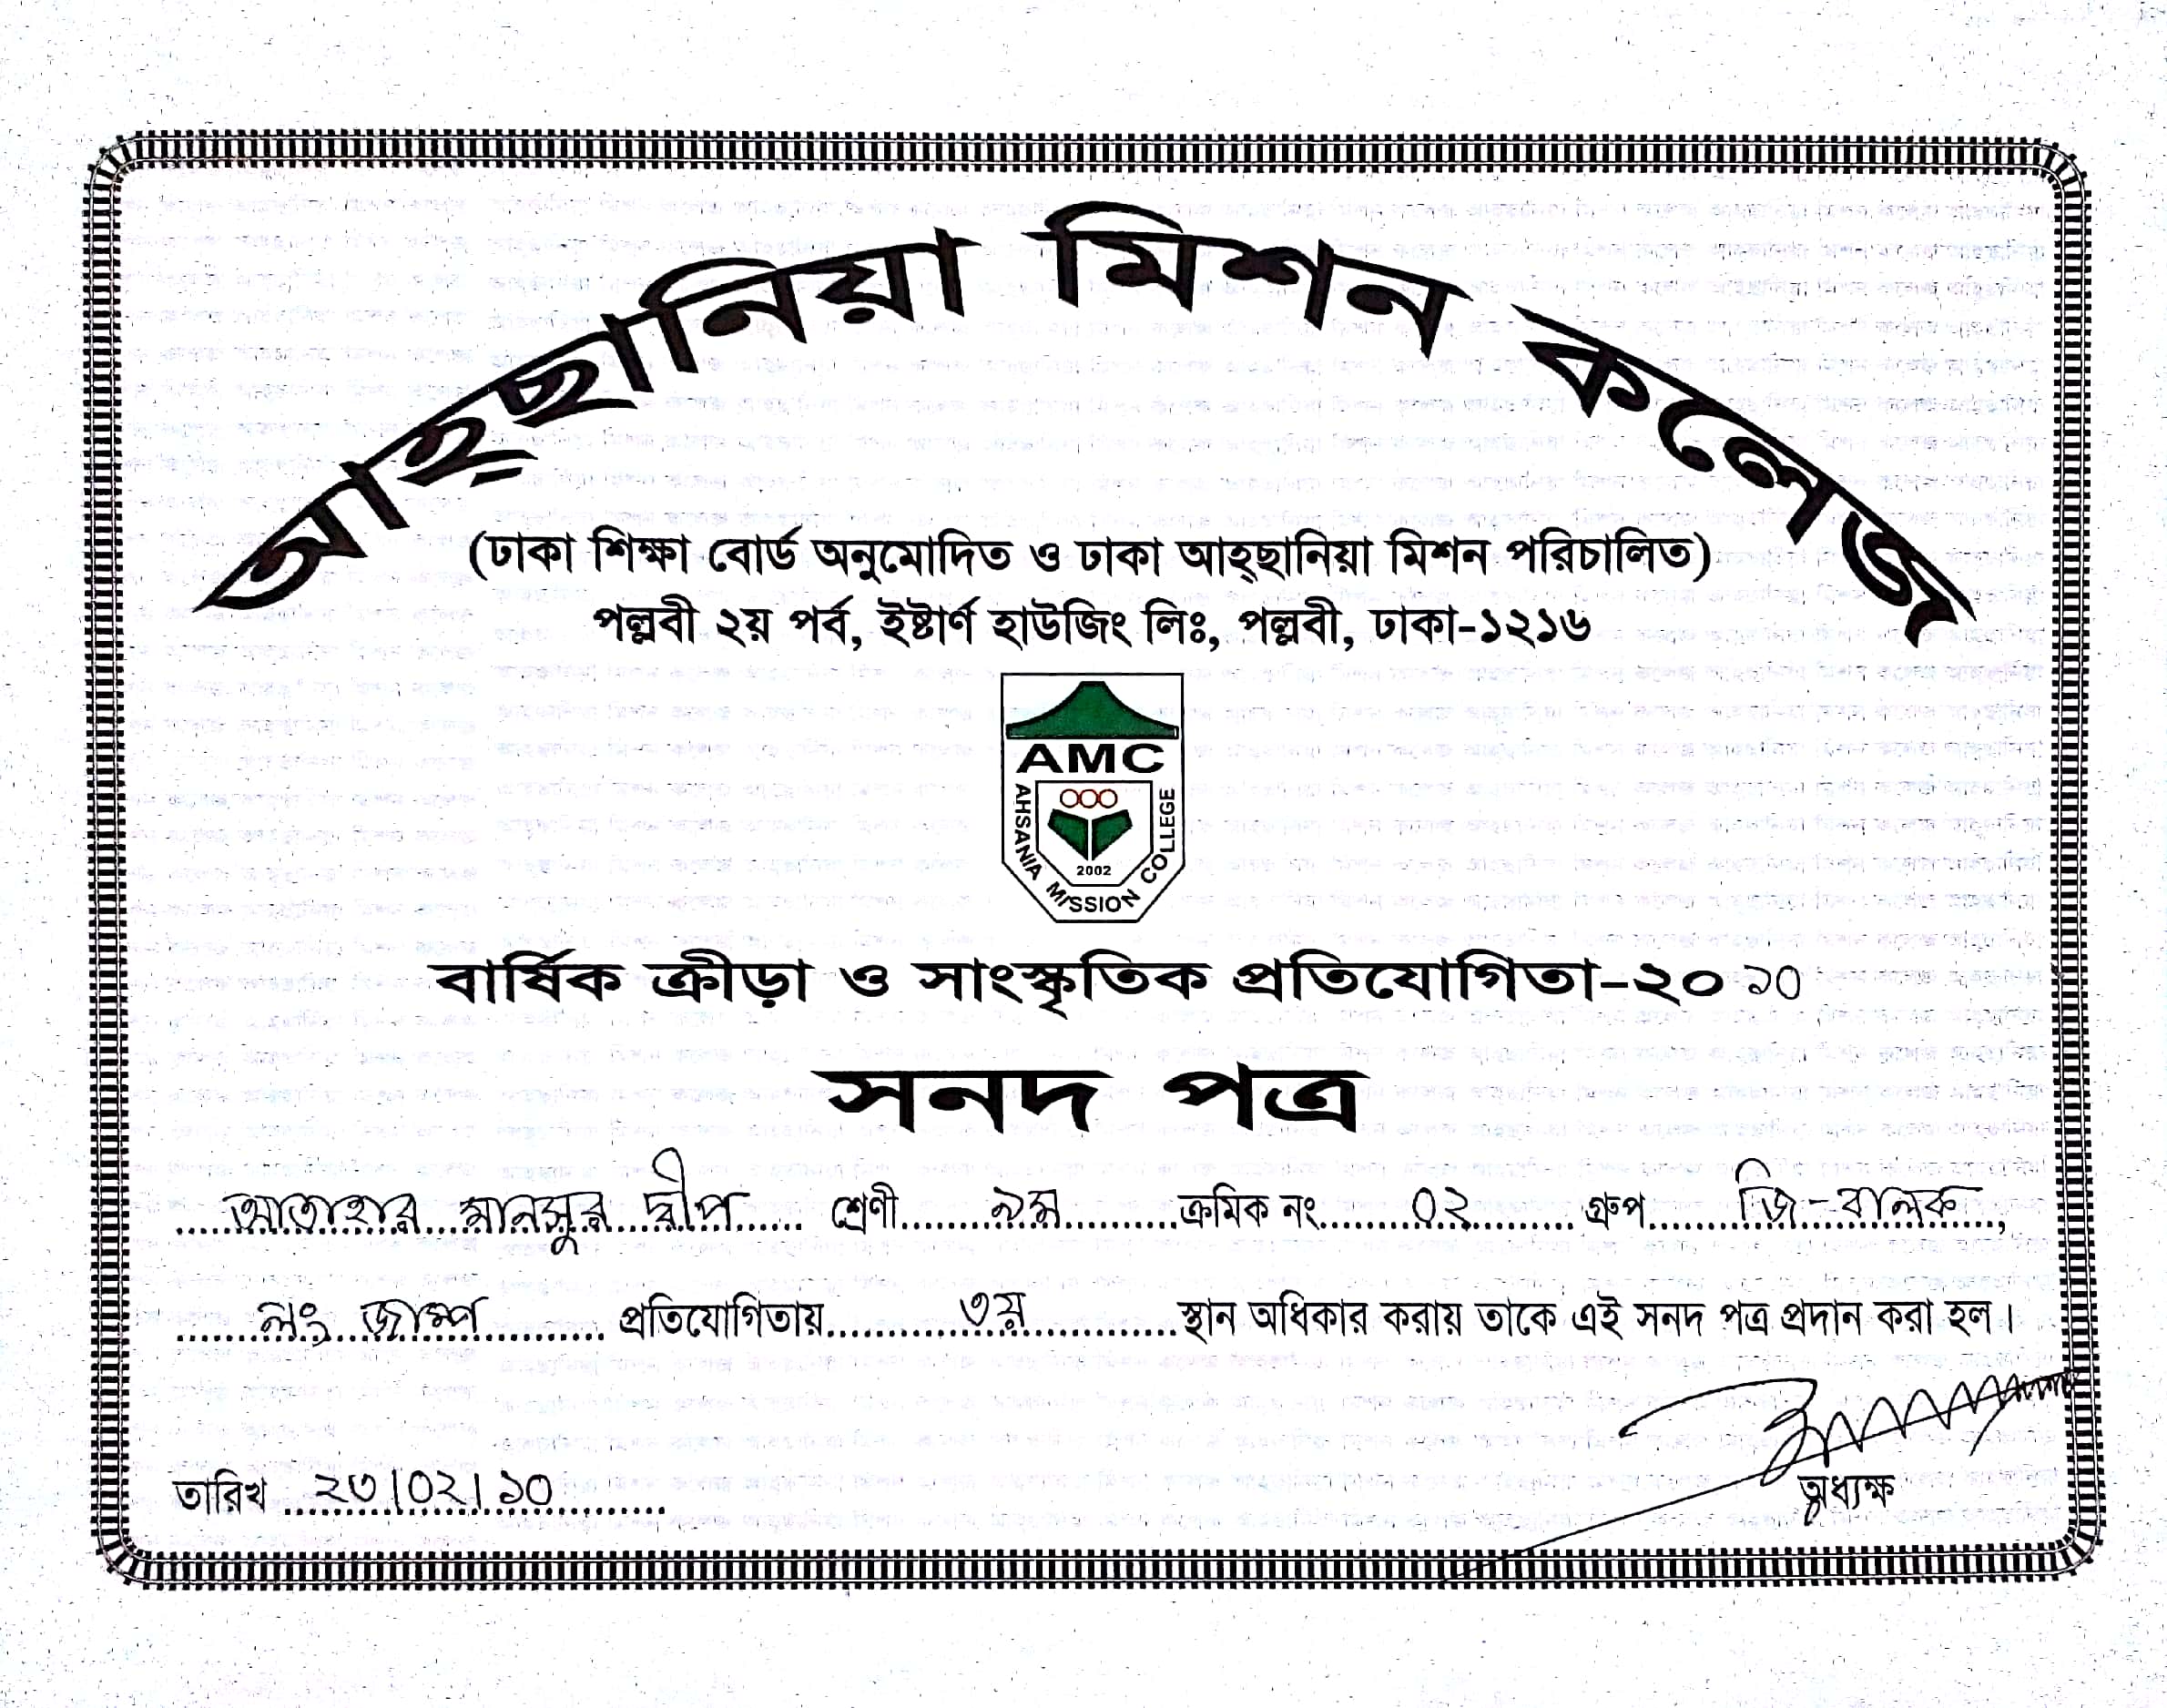 আহ্ছানিয়া মিশন কলেজ
(ঢাকা শিক্ষা বোর্ড অনুমোদিত ও ঢাকা আহ্ছানিয়া মিশন পরিচালিত)
পল্লবী ২য় পর্ব, ইষ্টার্ণ হাউজিং লিঃ, পল্লবী, ঢাকা-১২১৬
AMC
AHSANIA MISSION COLLEGE
2002
বার্ষিক ক্রীড়া ও সাংস্কৃতিক প্রতিযোগিতা-২০১০
সনদ পত্র
আতাহার মানসুর দ্বীপ শ্রেণী ৯ম ক্রমিক নং ০২ গ্রুপ জি-বালক,
লং জাম্প প্রতিযোগিতায় ৩য় স্থান অধিকার করায় তাকে এই সনদ পত্র প্রদান করা হল।
তারিখ ২৩/০২/১০
অধ্যক্ষ